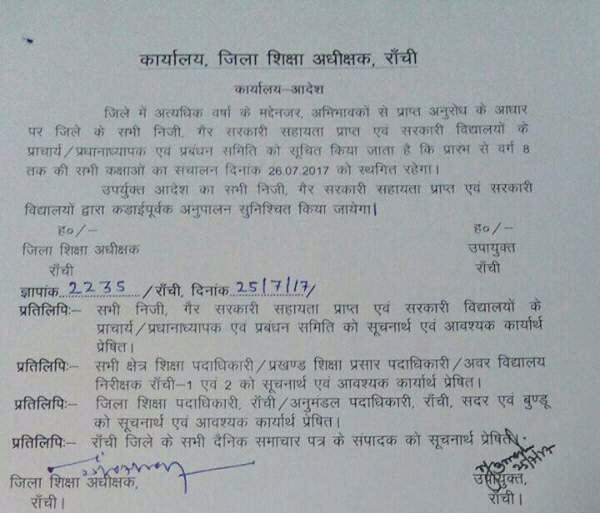 कार्यालय, जिला शिक्षा अधीक्षक, राँची
कार्यालय-आदेश
जिले में अत्यधिक वर्षा के मद्देनजर, अभिभावकों से प्राप्त अनुरोध के आधार
पर जिले के सभी निजी, गैर सरकारी सहायता प्राप्त एवं सरकारी विद्यालयों के
प्राचार्य/प्रधानाध्यापक एवं प्रबंधन समिति को सूचित किया जाता है कि प्रारंभ से वर्ग 8
तक की सभी कक्षाओं का संचालन दिनांक 26.07.2017 को स्थगित रहेगा।
उपर्युक्त आदेश का सभी निजी, गैर सरकारी सहायता प्राप्त एवं सरकारी
विद्यालयों द्वारा कडाईपूर्वक अनुपालन सुनिश्चित किया जायेगा।
ह०/- ह०/-
जिला शिक्षा अधीक्षक उपायुक्त
राँची राँची
ज्ञापांक 2235 /राँची, दिनांक 25/7/17/
प्रतिलिपिः- सभी निजी, गैर सरकारी सहायता प्राप्त एवं सरकारी विद्यालयों के
प्राचार्य/प्रधानाध्यापक एवं प्रबंधन समिति को सूचनार्थ एवं आवश्यक कार्यार्थ
प्रेषित।
प्रतिलिपिः- सभी क्षेत्र शिक्षा पदाधिकारी/प्रखण्ड शिक्षा प्रसार पदाधिकारी/अवर विद्यालय
निरीक्षक राँची-1 एवं 2 को सूचनार्थ एवं आवश्यक कार्यार्थ प्रेषित।
प्रतिलिपिः- जिला शिक्षा पदाधिकारी, राँची/अनुमंडल पदाधिकारी, राँची, सदर एवं बुण्डू
को सूचनार्थ एवं आवश्यक कार्यार्थ प्रेषित।
प्रतिलिपिः- राँची जिले के सभी दैनिक समाचार पत्र के संपादक को सूचनार्थ प्रेषित।
जिला शिक्षा अधीक्षक, उपायुक्त,
राँची। राँची।